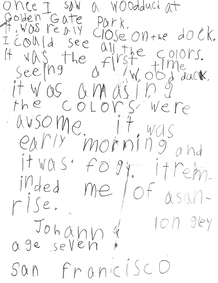 Once I saw a wooduct at
Golden Gate Park.
It was realy close on the dock.
I could see all the colors.
It was the first time
seeing a wood duck.
it was amasing
the colors were
ausome. it was
early morning and
it was fogy. it rem-
inded me of asan-
rise.
Johann a longley
age seven
San Francisco